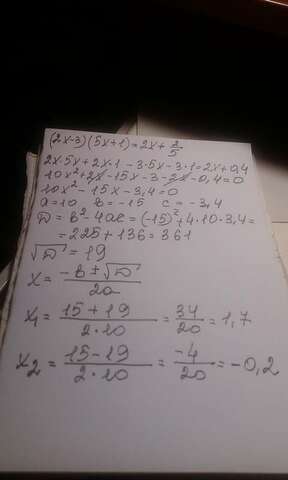 (2x-3)(5x+1)=2x+2/5
2x·5x+2x·1-3·5x-3·1=2x+0,4
10x²+2x-15x-3-2x-0,4=0
10x²-15x-3,4=0
a=10 b=-15 c=-3,4
D=b²-4ac=(-15)²+4·10·3,4=
=225+136=361
√D=19
x=(-b±√D)/2a
x₁=(15+19)/(2·10)=34/20=1,7
x₂=(15-19)/(2·10)=-4/20=-0,2